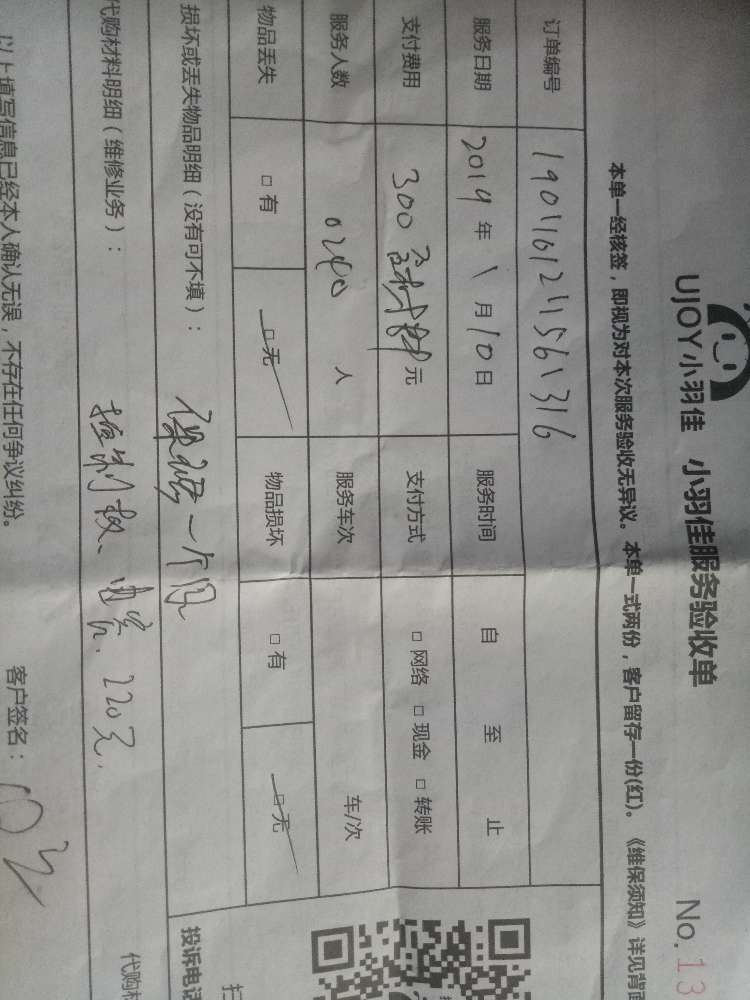 UJOY小羽佳 小羽佳服务验收单 No. 13
本单一经核签，即视为对本次服务验收无异议。本单一式两份，客户留存一份(红)。《维保须知》详见背面
订单编号 1901101241561316
服务日期 2019年1月10日 服务时间 自 至 止
支付费用 300 元 支付方式 □网络 □现金 □转账
服务人数 0240 人 服务车次 车/次
物品丢失 □有 □无 物品损坏 □有 □无
损坏或丢失物品明细（没有可不填）： 保修一个月
代购材料明细（维修业务）： 控制板、电容、220元.
以上填写信息已经本人确认无误，不存在任何争议纠纷。 客户签名：
投诉电话
扫
代购材